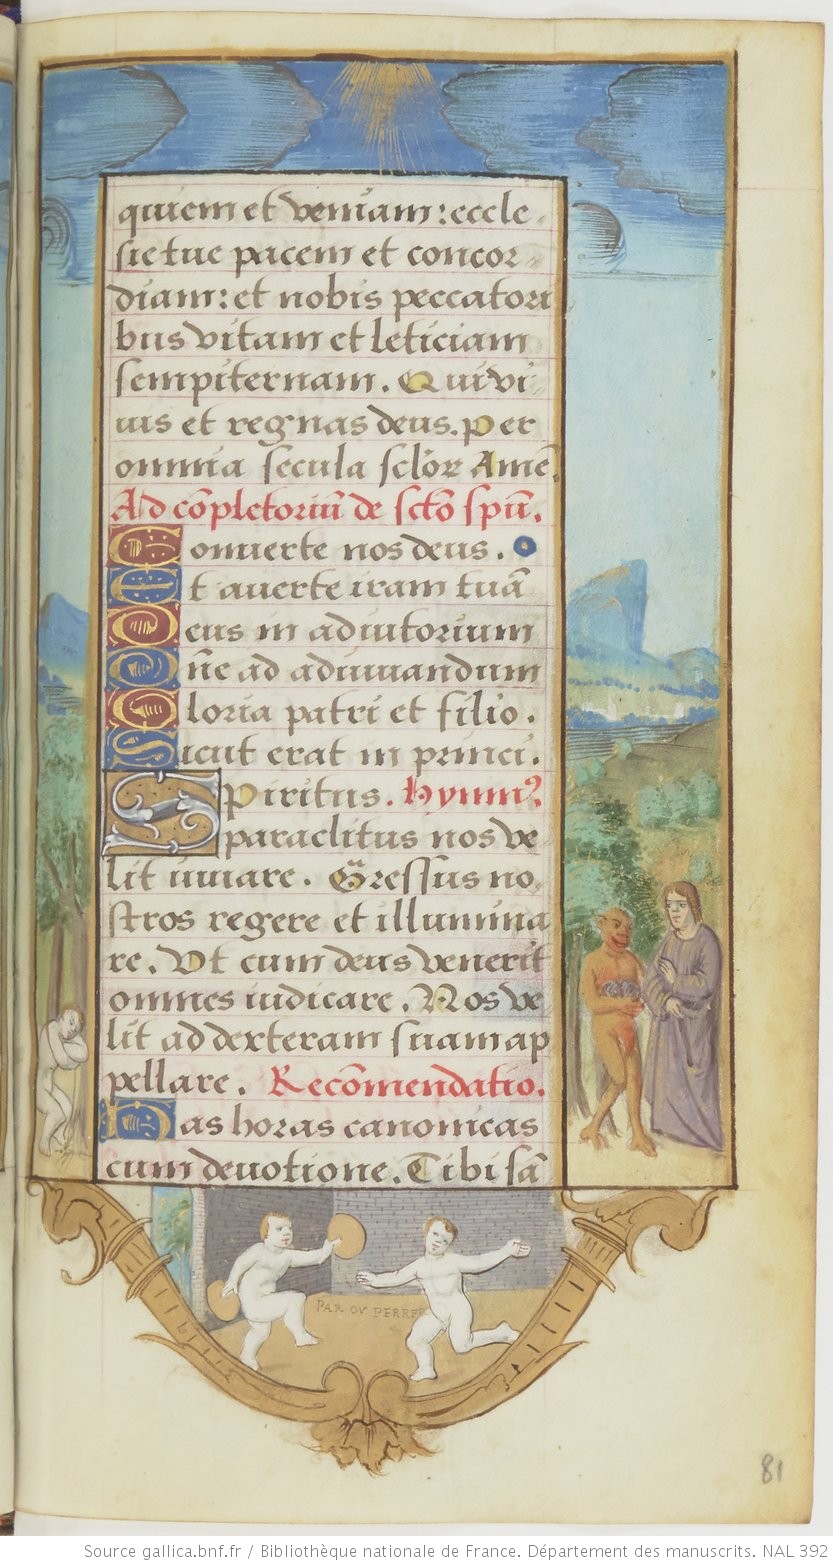 quiem et veniam: eccle-
sie tue pacem et concor-
diam: et nobis peccatori
bus vitam et leticiam
sempiternam. Qui vi-
uis et regnas deus. Per
omnia secula sclōꝝ Amē.
Ad cōpletoriū de sctō spū.
Conuerte nos deus.
Et auerte iram tuā
Deus in adiutorium
Dn̄e ad adiuuandum
Gloria patri et filio.
Sicut erat in princi.
Spiritus. Hymnꝰ.
paraclitus nos ve-
lit iuuare. Gressus no-
stros regere et illumina
re. Vt cum deus venerit
omnes iudicare. Nos ve
lit ad dexteram suam ap
pellare. Recōmendatio.
Has horas canonicas
cum deuotione. Tibi sā
PAR OV PERRE
81
Source gallica.bnf.fr / Bibliothèque nationale de France. Département des manuscrits. NAL 392